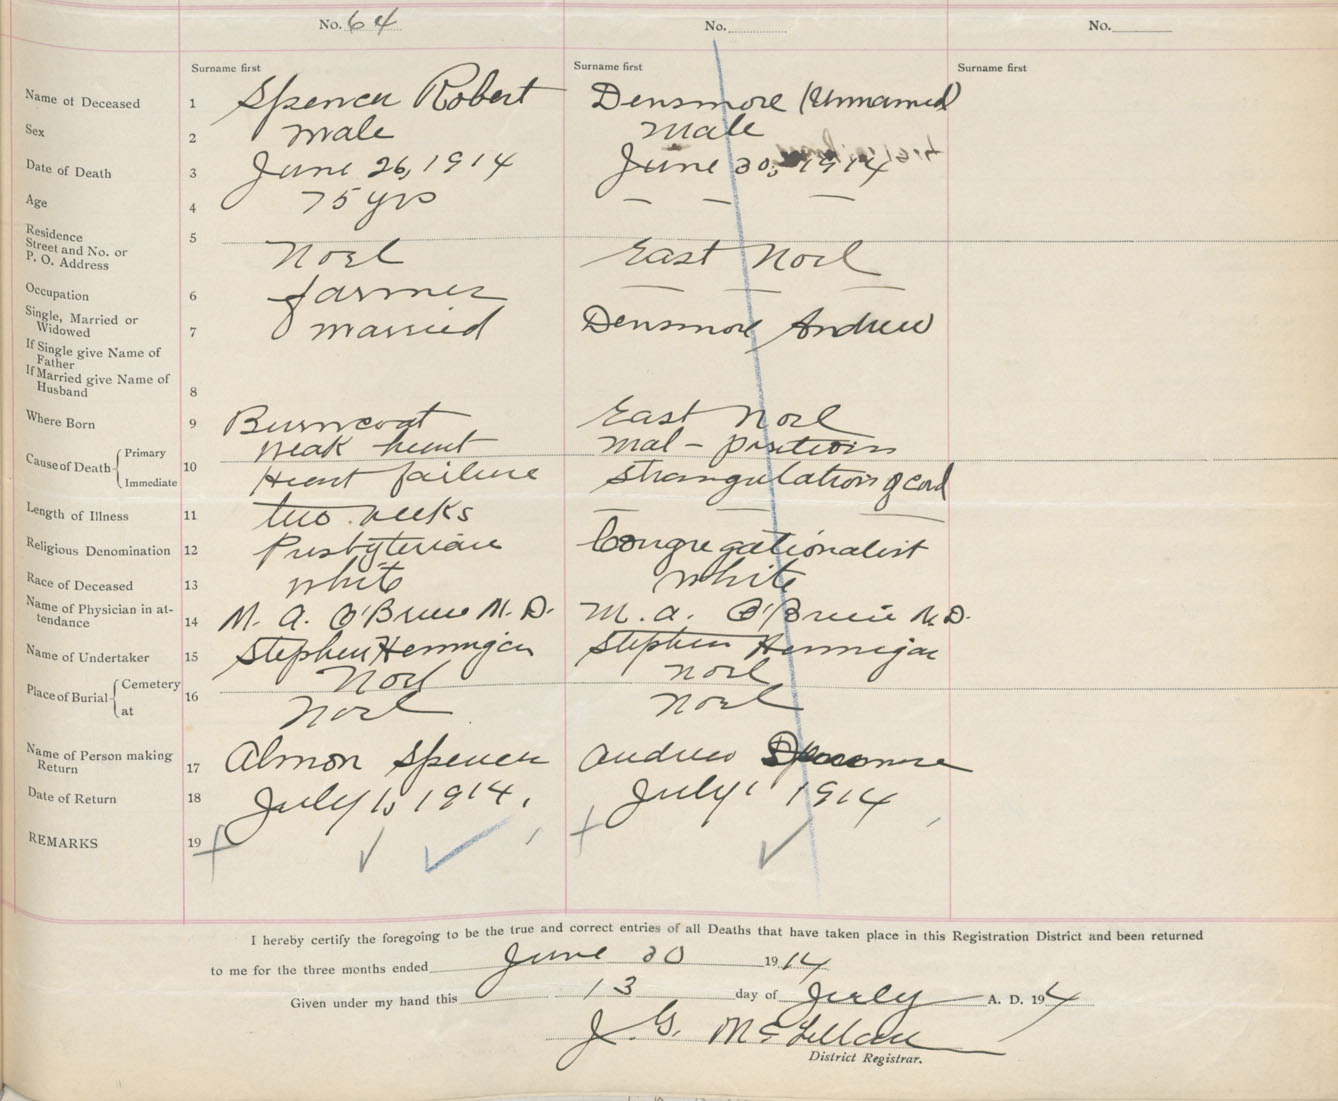 No. 64 No. No.
Surname first Surname first Surname first
Name of Deceased 1 Spencer Robert Densmore (Unnamed)
Sex 2 Male Male
Date of Death 3 June 26, 1914 June 30, 1914
Age 4 75 yrs — — —
Residence
Street and No. or
P. O. Address 5 Noel East Noel
Occupation 6 farmer — — —
Single, Married or
Widowed 7 Married Densmore Andrew
If Single give Name of
Father
If Married give Name of
Husband 8
Where Born 9 Burncoat East Noel
Cause of Death Primary weak heart mal-position
10
Immediate Heart failure strangulation of cord
Length of Illness 11 two weeks — — —
Religious Denomination 12 Presbyterian Congregationalist
Race of Deceased 13 white white
Name of Physician in at-
tendance 14 M. A. O'Brien M. D. M. A. O'Brien M. D.
Name of Undertaker 15 Stephen Hennigar Stephen Hennigar
Place of Burial Cemetery Noel Noel
16
at Noel Noel
Name of Person making
Return 17 Almon Spencer Andrew Densmore
Date of Return 18 July 1, 1914, July 1 1914
REMARKS 19
I hereby certify the foregoing to be the true and correct entries of all Deaths that have taken place in this Registration District and been returned
to me for the three months ended June 30 1914
Given under my hand this 13 day of July A. D. 194
J. G. McLellan
District Registrar.